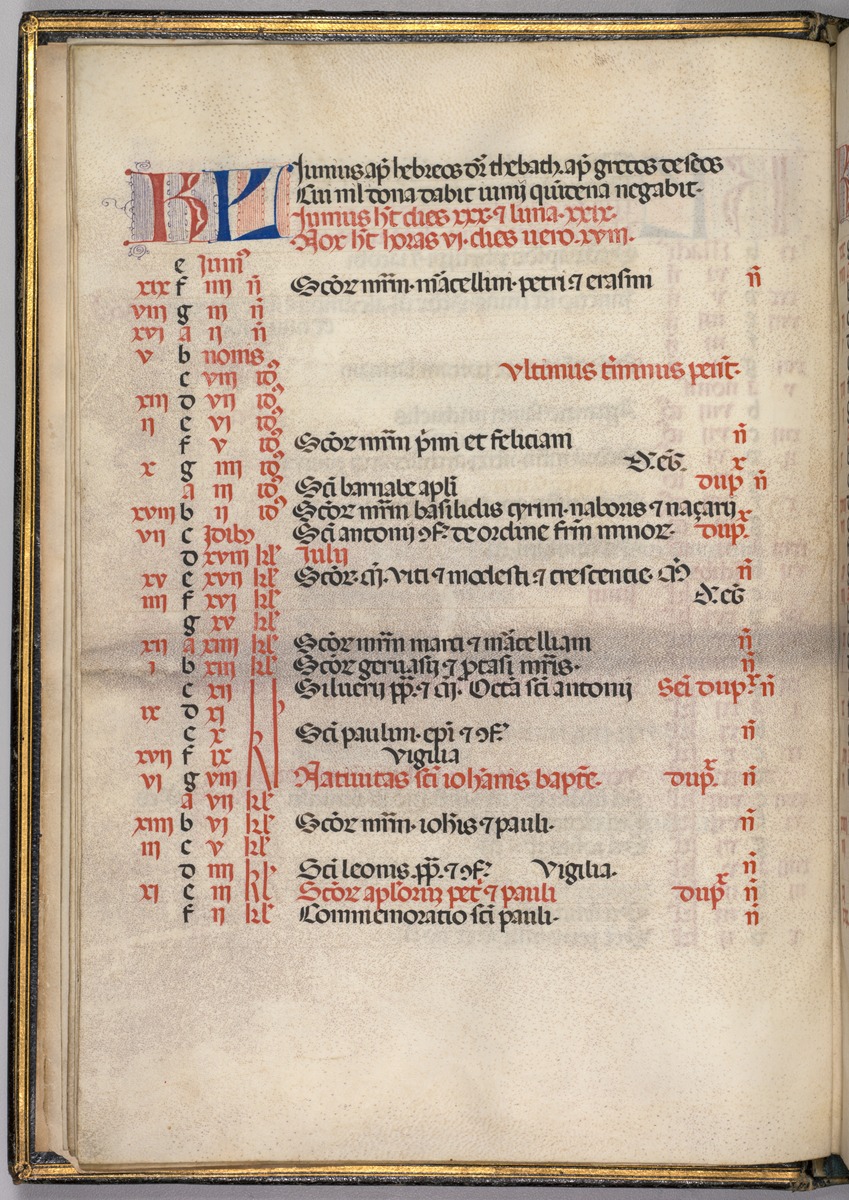 KL Junius ap̄ hebreos dr̄ thebath. ap̄ grecos descos
Cui nil dona dabit iunij quītena negabit.
Junius hт̄ dies xxx. ⁊ luna. xxix.
Nox hт̄ horas vi. dies uero. xviii.
e Junij
xix f iiii n̄ Scōr mr̄m. m̄cellini. petri ⁊ erasmi n̄
viii g iii n̄
xvi a ii n̄
v b nonis
c viii id9 vltimus t̄minus pent̄.
xiii d vii id9
ii e vi id9
f v id9 Scōr mr̄m p̄mi et feliciani n̄
x g iiii id9 x
a iii id9 Sc̄i barnabe apl̄i dup n̄
xviii b ii id9 Scōr mr̄m basilidis cyrini. naboris ⁊ naçarij
vii c Idib9 Sc̄i antonij ꝯf. de ordine frm̄ minor. dupx.
d xviii kl̄ Julij
xv e xvii kl̄ Scōr. m̄. viti ⁊ modesti ⁊ crescentie. n̄
iiii f xvi kl̄
g xv kl̄
xii a xiiii kl̄ Scōr mr̄m marci ⁊ m̄celliani n̄
i b xiii kl̄ Scōr geruasij ⁊ ꝓtasij mr̄is. n̄
c xii kl̄ Siluerij pp̄. ⁊ m̄. Octā sc̄i antonij Sc̄i dupx. n̄
ix d xi
e x Sc̄i paulini. ep̄i ⁊ ꝯf. n̄
xvii f ix Vigilia
vi g viii Natiuitas sc̄i ioh̄annis bapт̄e. dupx. n̄
a vii kl̄
xiiii b vi kl̄ Scōr mr̄m. ioh̄is ⁊ pauli. n̄
iii c v kl̄
d iiii kl̄ Sc̄i leonis. pp̄. ⁊ ꝯf. Vigilia. n̄
xi e iii kl̄ Scōr apl̄orum pet̄ ⁊ pauli dupx n̄
f ii kl̄ Commemoratio sc̄i pauli. n̄